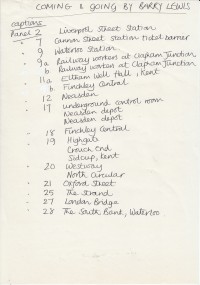 COMING & GOING BY BARRY LEWIS
captions
Panel 2 Liverpool Street Station
- 7 Cannon Street Station ticket barrier
- 9 Waterloo Station
- 9a Railway workers at Clapham Junction
b Railway workers at Clapham Junction
- 11a Eltham Well Hall, Kent
b Finchley Central
- 12 Neasden
- 17 underground control room
Neasden depot
Neasden depot
- 18 Finchley Central
- 19 Highgate
Crouch End
Sidcup, Kent
- 20 Westway
North Circular
- 21 Oxford Street
- 25 The Strand
- 27 London Bridge
- 28 The South Bank, Waterloo